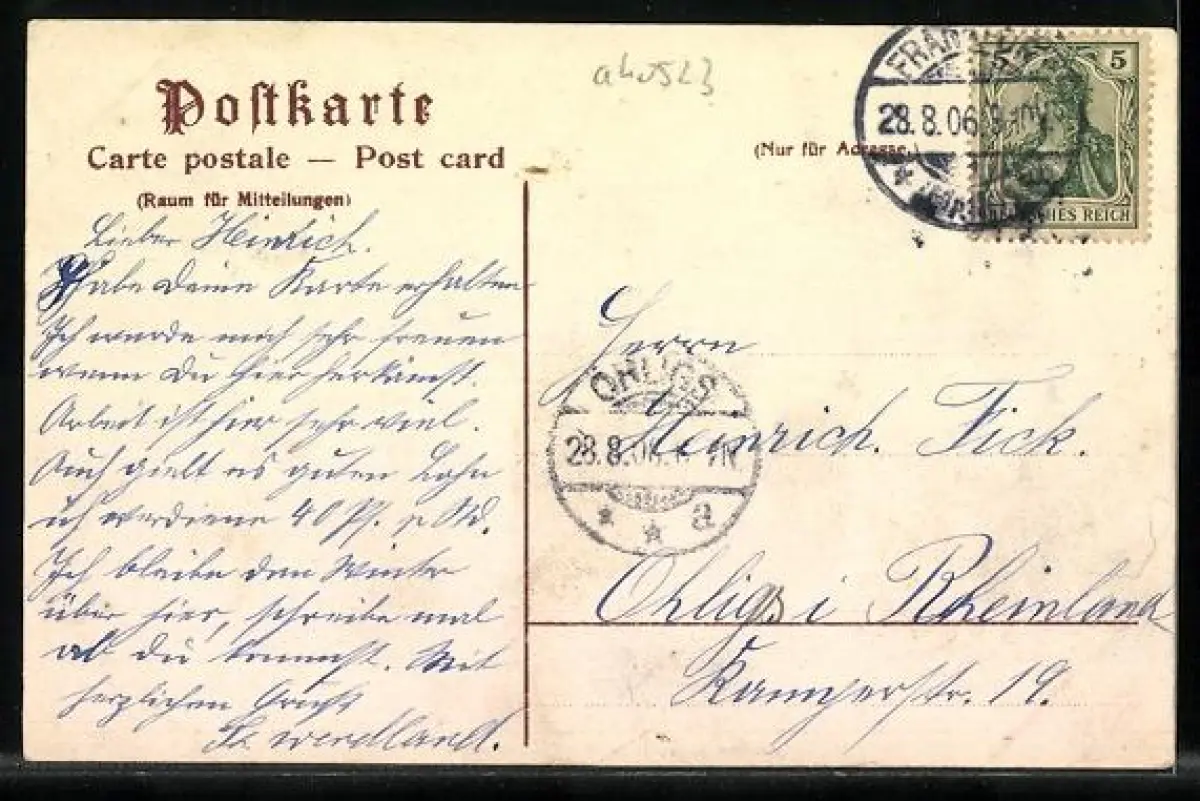 Postkarte
Carte postale — Post card
(Raum für Mitteilungen)
(Nur für Adresse.)
28.8.06.
5 5
DEUTSCHES REICH
Lieber Heinrich.
Habe Deine Karte erhalten
Ich würde mich sehr freuen
wenn Du hier herkämst.
Arbeit ist hier sehr viel.
Auch giebt es guten Lohn
ich verdiene 40 Pf. p Std.
Ich bleibe den Winter
über hier, schreibe mal
ob Du kommst. Mit
herzlichen Gruß
Fr.
OHLIGS
28.8.06.
a
Herrn
Heinrich. Fick.
Ohligs i Rheinland
19.